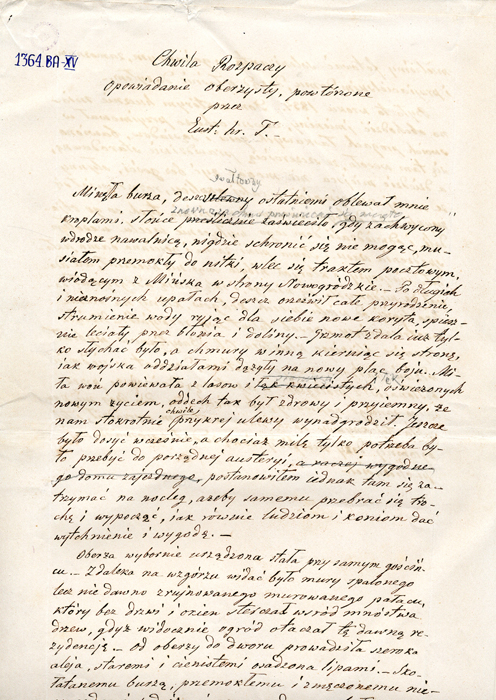 1364.BA-XV
Chwila Rozpaczy
opowiadanie oberżysty, powtórzone
przez
Eust: hr. T. –
gwałtowny
Minęła burza, deszcz ostatniemi oblewał mnie
kroplami, słońce prześlicznie zaświeciło, gdy zachwycony
w drodze nawałnicą, nigdzie schronić się nie mogąc, mu-
siałem przemokły do nitki, wlec się traktem pocztowym,
wiodącym z Mińska w strony Nowogrodzkie. – Po długich
i nieznośnych upałach, deszcz orzeźwił całe przyrodzenie
strumienie wody ryjąc dla siebie nowe koryta, śpiesz-
nie leciały przez błonia i doliny. – Grzmot zdala już tyl-
ko słychać było, a chmury w inną kierując się stronę,
jak wojska oddziałami dążyły na nowy plac boju. Mi-
ła woń powiewała z lasow i łąk kwiecistych, oświeżonych
nowym życiem, oddech tak był zdrowy i przyjemny, że
nam stokrotnie chwilę przykrej ulewy wynadgrodził. Jeszcze
było dosyć wcześnie, a chociaż milę tylko potrzeba by-
ło przebyć do porządnej austeryi, a raczej wygodne-
go domu zajezdnego, postanowiłem jednak tam się za-
trzymać na nocleg, ażeby samemu przebrać się tro-
chę i wypocząć, jak równie ludziom i koniom dać
wytchnienie i wygodę. –
Oberża wybornie urządzona stała przy samym gościń-
cu. – Zdaleka na wzgórzu widać było mury spalonego
lecz nie dawno zrujnowanego murowanego pałacu,
który bez drzwi i okien sterczał wsród mnóstwa
drzew, gdyż widocznie ogród otaczał tę dawną re-
zydencję. – od oberży do dworu prowadziła szeroka
aleja, staremi i cienistemi osadzona lipami. – Sko-
łatanemu burzą, przemokłemu i znużonemu nie